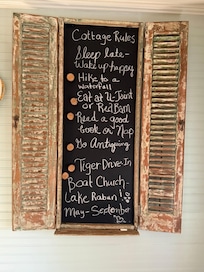 Cottage Rules
Sleep late -
Wake up happy
Hike to a
waterfall
Eat at U-Joint
or Red Barn
Read a good
book or Nap
Go Antiquing
Tiger Drive In
Boat Church -
Lake Rabun!
May - September